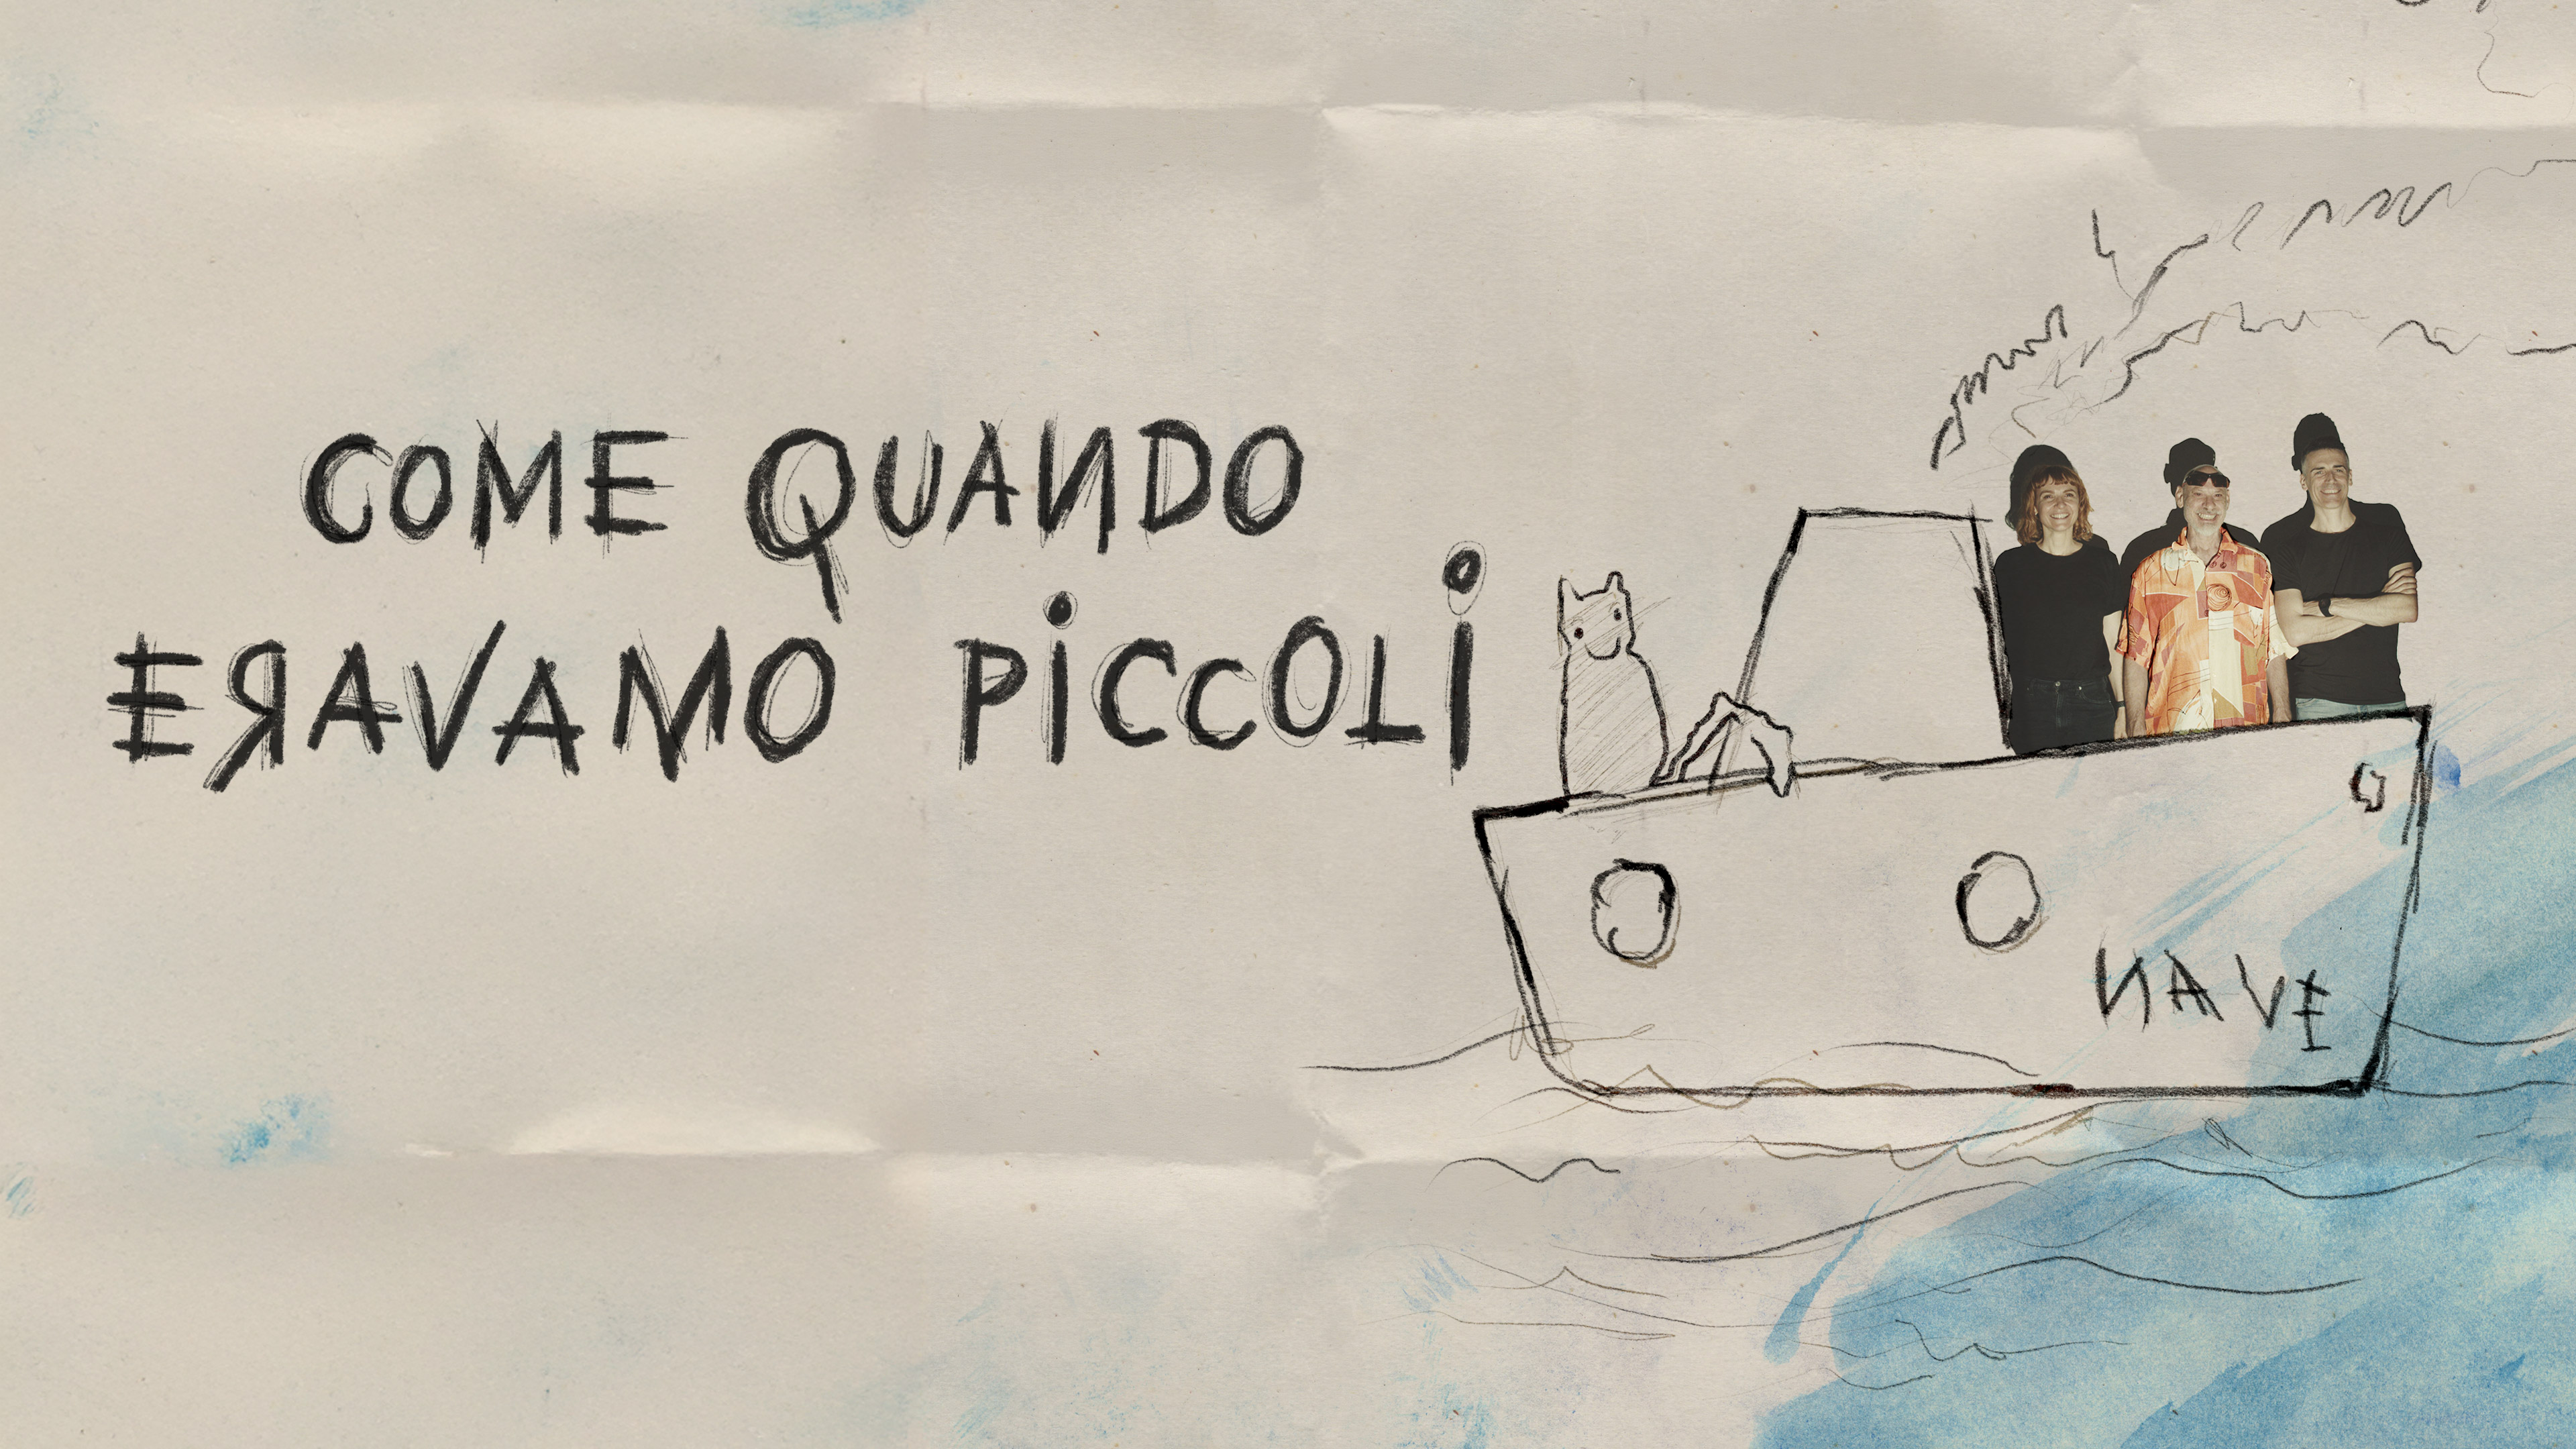 COME QUANDO
ERAVAMO PiCCOLi
NAVE